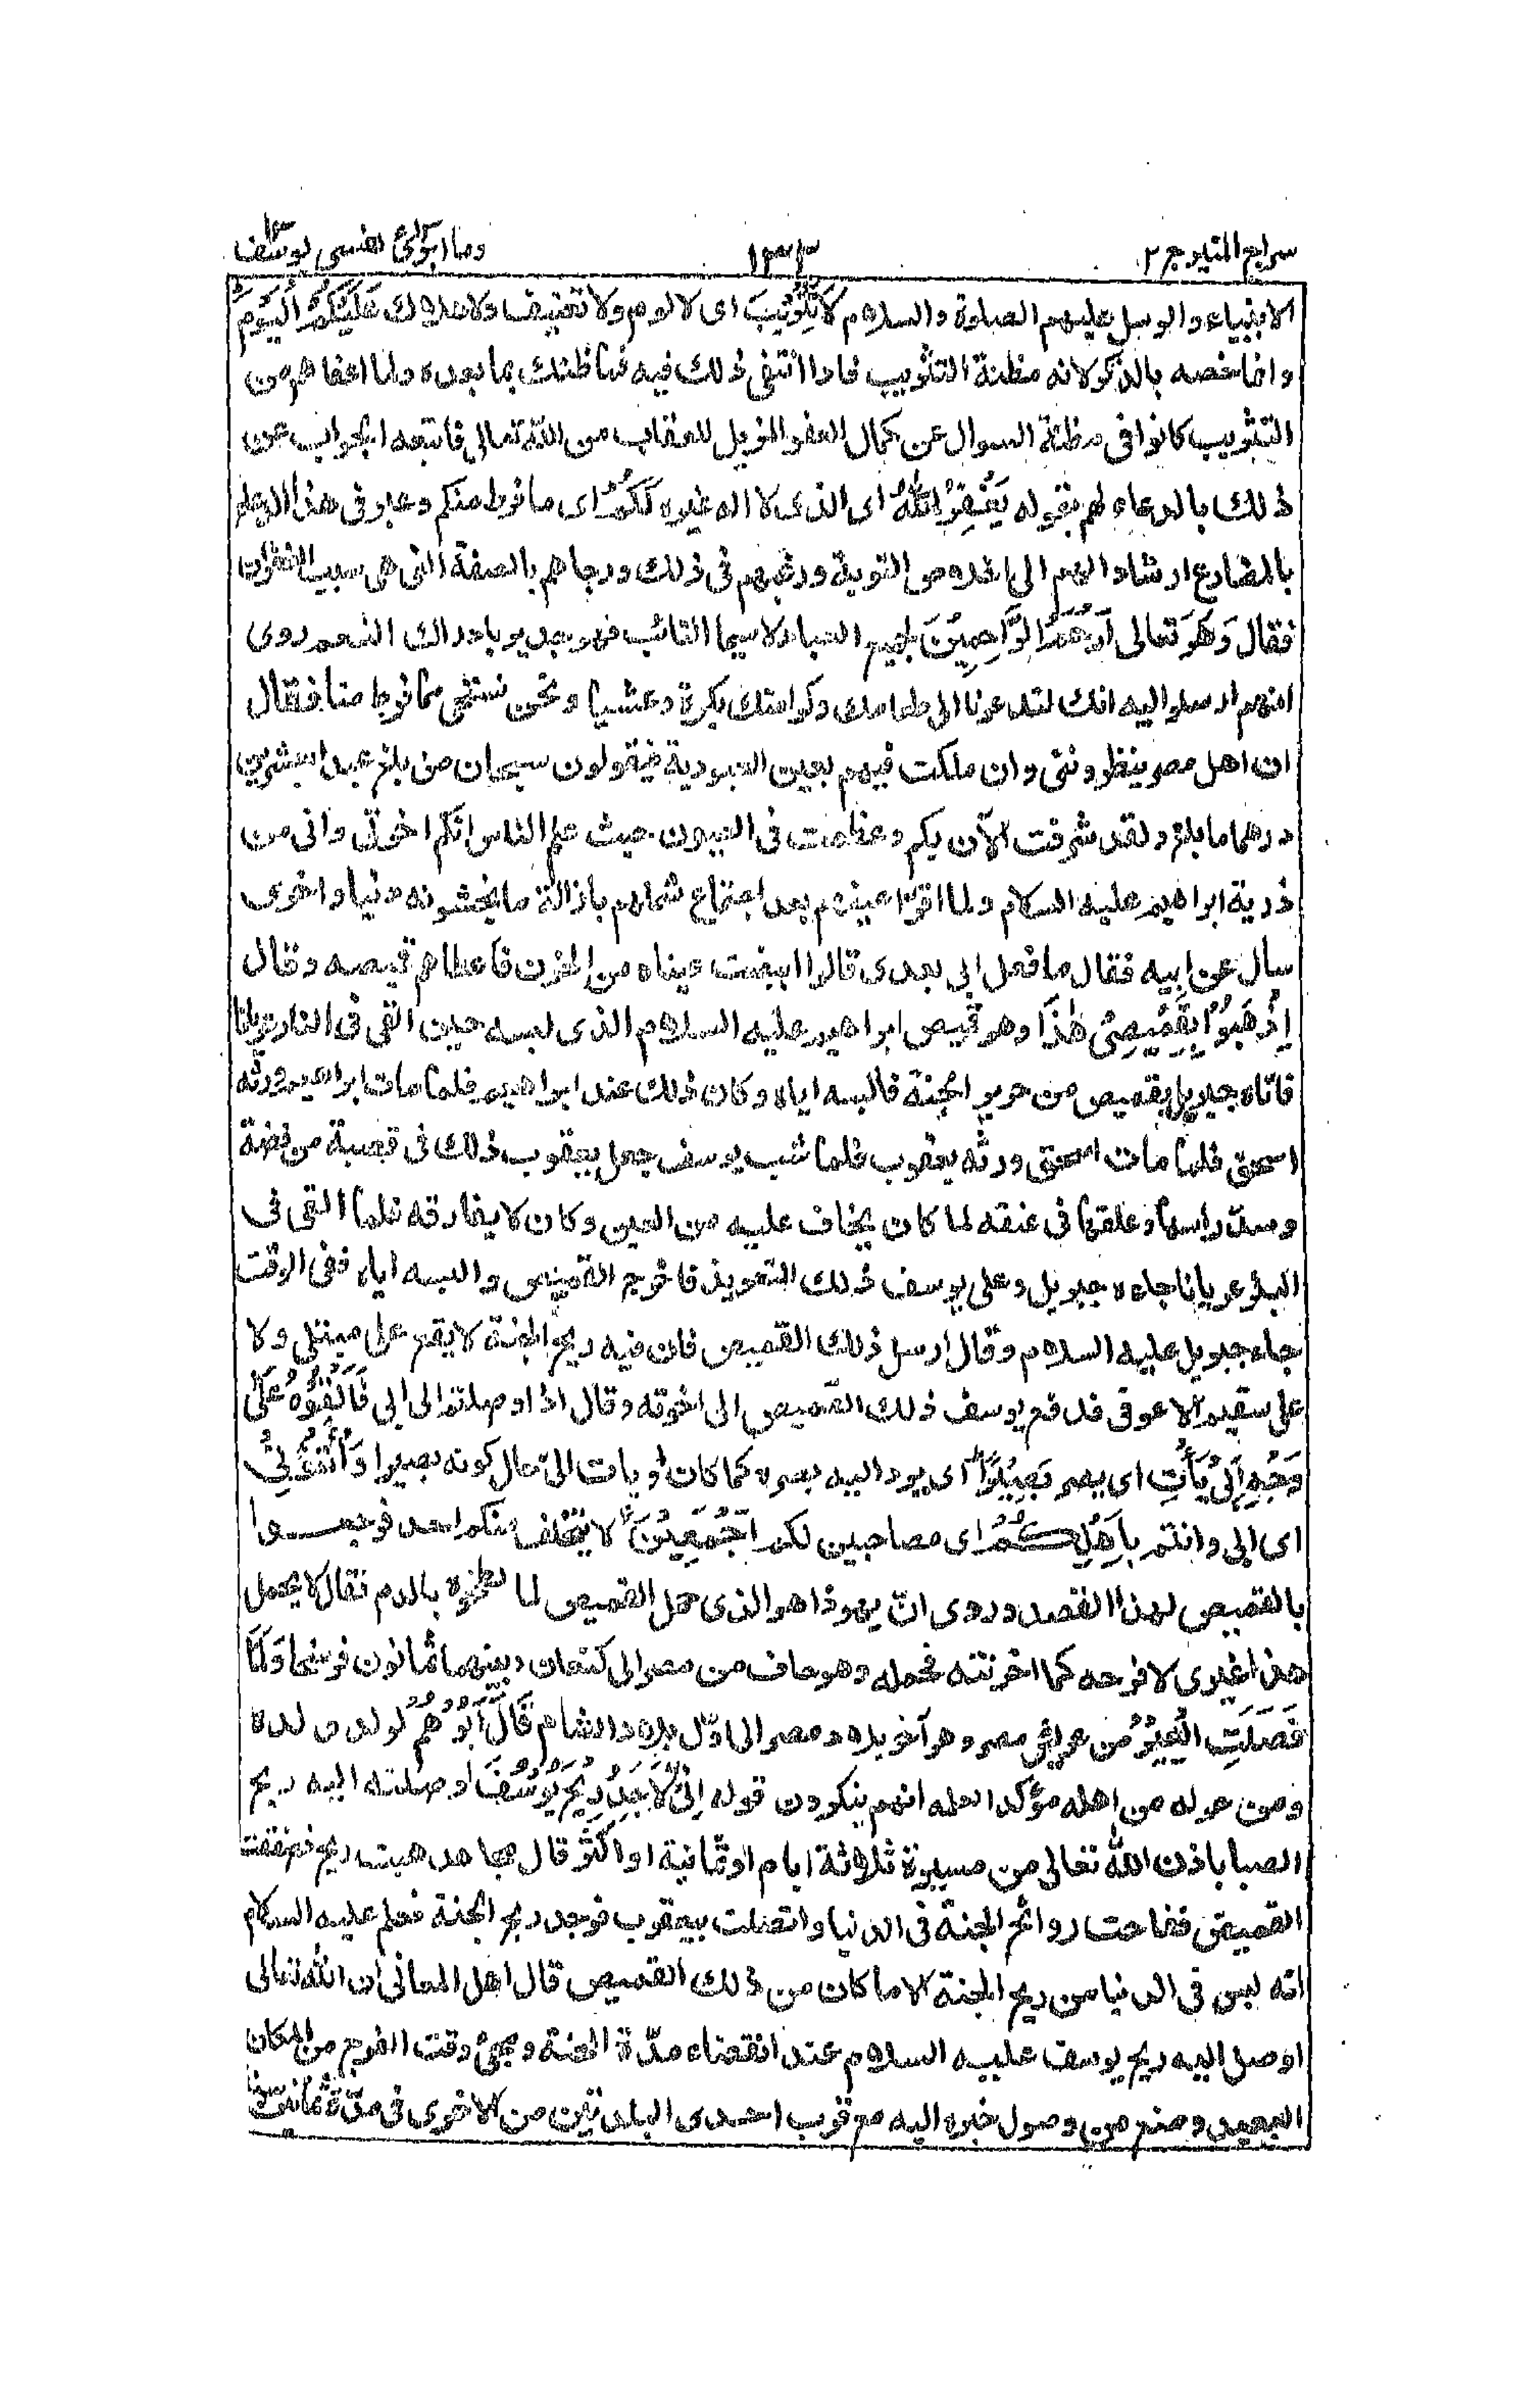 سراج المنير ج ٢ ١٣٣ وما ابرئ نفسى يوسف
الانبياء والرسل عليهم الصلوة والسلام لَا تَثْرِيْبَ اى لا لوم ولا تعنيف ولا هلاك عَلَيْكُمُ الْيَوْمَ
وانما خصه بالذكر لانه مظنة التثريب فاذا انتفى ذلك فيه فما ظنك بما بعده ولما اعفاهم من
التثريب كانوا فى مظنة السوال عن كمال العفو المزيل للعقاب من الله تعالى فاتبعه الجواب عن
ذلك بالدعاء لهم بقوله يَغْفِرُ اللهُ اى الذى لا اله غيره لَكُمْ اى ما فرط منكم وعبر فى هذا الدعاء
بالمضارع ارشادا لهم الى اخلاص التوبة ورغبهم فى ذلك ورجاهم بالصفة التى هى سبب الغفران
فقال وَهُوَ تعالى اَرْحَمُ الرَّاحِمِيْنَ لجميع العباد لا سيما التائب فهو جدير بادراك النعم روى
انهم ارسلوا اليه انك لتدعونا الى طعامك وكرامتك بكرة وعشيا ونحن نستحى مما فرط منا فقال
ان اهل مصر ينظرونى وان ملكت فيهم بعين العبودية فيقولون سبحان من بلغ عبدا بعشرين
درهما ما بلغ ولقد شرفت الآن بكم وعظمت فى العيون حيث علم الناس انكم اخوتى وانى من
ذرية ابراهيم عليه السلام ولما اقرّ اعينهم بعد اجتماع شملهم بازالة ما يخشونه دنيا واخرى
سال عن ابيه فقال ما فعل ابى بعدى قالوا ابيضت عيناه من الحزن فاعطاهم قميصه وقال
اِذْهَبُوْا بِقَمِيْصِىْ هٰذَا وهو قميص ابراهيم عليه السلام الذى لبسه حين القى فى النار عريانا
فاتاه جبريل بقميص من حرير الجنة فالبسه اياه وكان ذلك عند ابراهيم فلما مات ابراهيم ورثه
اسحق فلما مات اسحق ورثه يعقوب فلما شب يوسف جعل يعقوب ذلك فى قصبة من فضة
وسدّ راسها وعلقها فى عنقه لما كان يخاف عليه من العين وكان لا يفارقه فلما القى فى
البئر عريانا جاءه جبريل وعلى يوسف ذلك التعويذ فاخرج القميص والبسه اياه ففى الوقت
جاء جبريل عليه السلام وقال ارسل ذلك القميص فان فيه ريح الجنة لا يقع على مبتلى ولا
على سقيم الا عوفى فدفع يوسف ذلك القميص الى اخوته وقال اذا وصلتم الى ابى فَاَلْقُوْهُ عَلٰى
وَجْهِ اَبِىْ يَاْتِ اى يصر بَصِيْرًا اى يرد اليه بصره كما كان او يات الىّ حال كونه بصيرا وَاْتُوْنِىْ
اى ابى وانتم بِاَهْلِكُمْ اى مصاحبين لكم اَجْمَعِيْنَ لا يتخلف منكم احد فرجعوا
بالقميص لهذا القصد وروى انّ يهوذا هو الذى حمل القميص لما لطخوه بالدم فقال لا يحمل
هذا غيرى لافرحه كما احزنته فحمله وهو حاف من مصر الى كنعان وبينهما ثمانون فرسخا وَلَمَّا
فَصَلَتِ الْعِيْرُ من عريش مصر وهو آخر بلاد مصر الى اوّل بلاد الشام قَالَ اَبُوْهُمْ لولد ولده
ومن حوله من اهله مؤكدا لعلمه انهم ينكرون قوله اِنِّىْ لَاَجِدُ رِيْحَ يُوْسُفَ اوصلته اليه ريح
الصبا باذن الله تعالى من مسيرة ثلاثة ايام او ثمانية او اكثر قال مجاهد هبت ريح فصفقت
القميص ففاحت روائح الجنة فى الدنيا واتصلت بيعقوب فوجد ريح الجنة فعلم عليه السلام
انه ليس فى الدنيا من ريح الجنة الا ما كان من ذلك القميص قال اهل المعانى ان الله تعالى
اوصل اليه ريح يوسف عليه السلام عند انقضاء مدّة المحنة ومجئ وقت الفرج من المكان
البعيد ومنع من وصول خبره اليه مع قرب احدى البلدتين من الاخرى فى مدّة ثمانين سنة